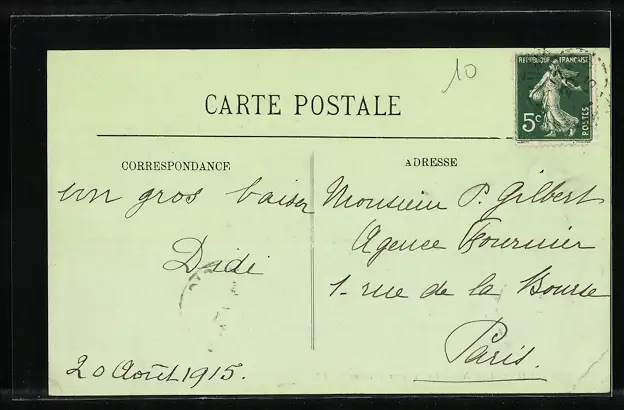 10
CARTE POSTALE
REPUBLIQUE FRANÇAISE
5c
POSTES
CORRESPONDANCE
un gros baiser
Dédé
20 Août 1915.
ADRESSE
Monsieur P. Gilbert
Agence Fournier
1. rue de la Bourse
Paris.